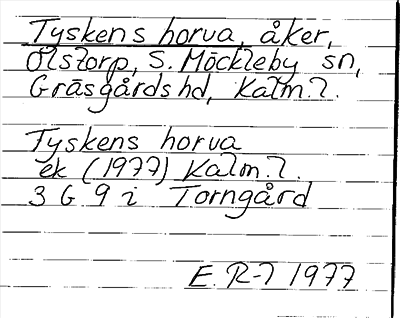 Tyskens horva, åker,
Olstorp, S. Möckleby sn,
Gräsgårds hd, Kalm. l.
Tyskens horva
ek (1977) Kalm. l.
3 G 9 i Torngård
E. R-l 1977